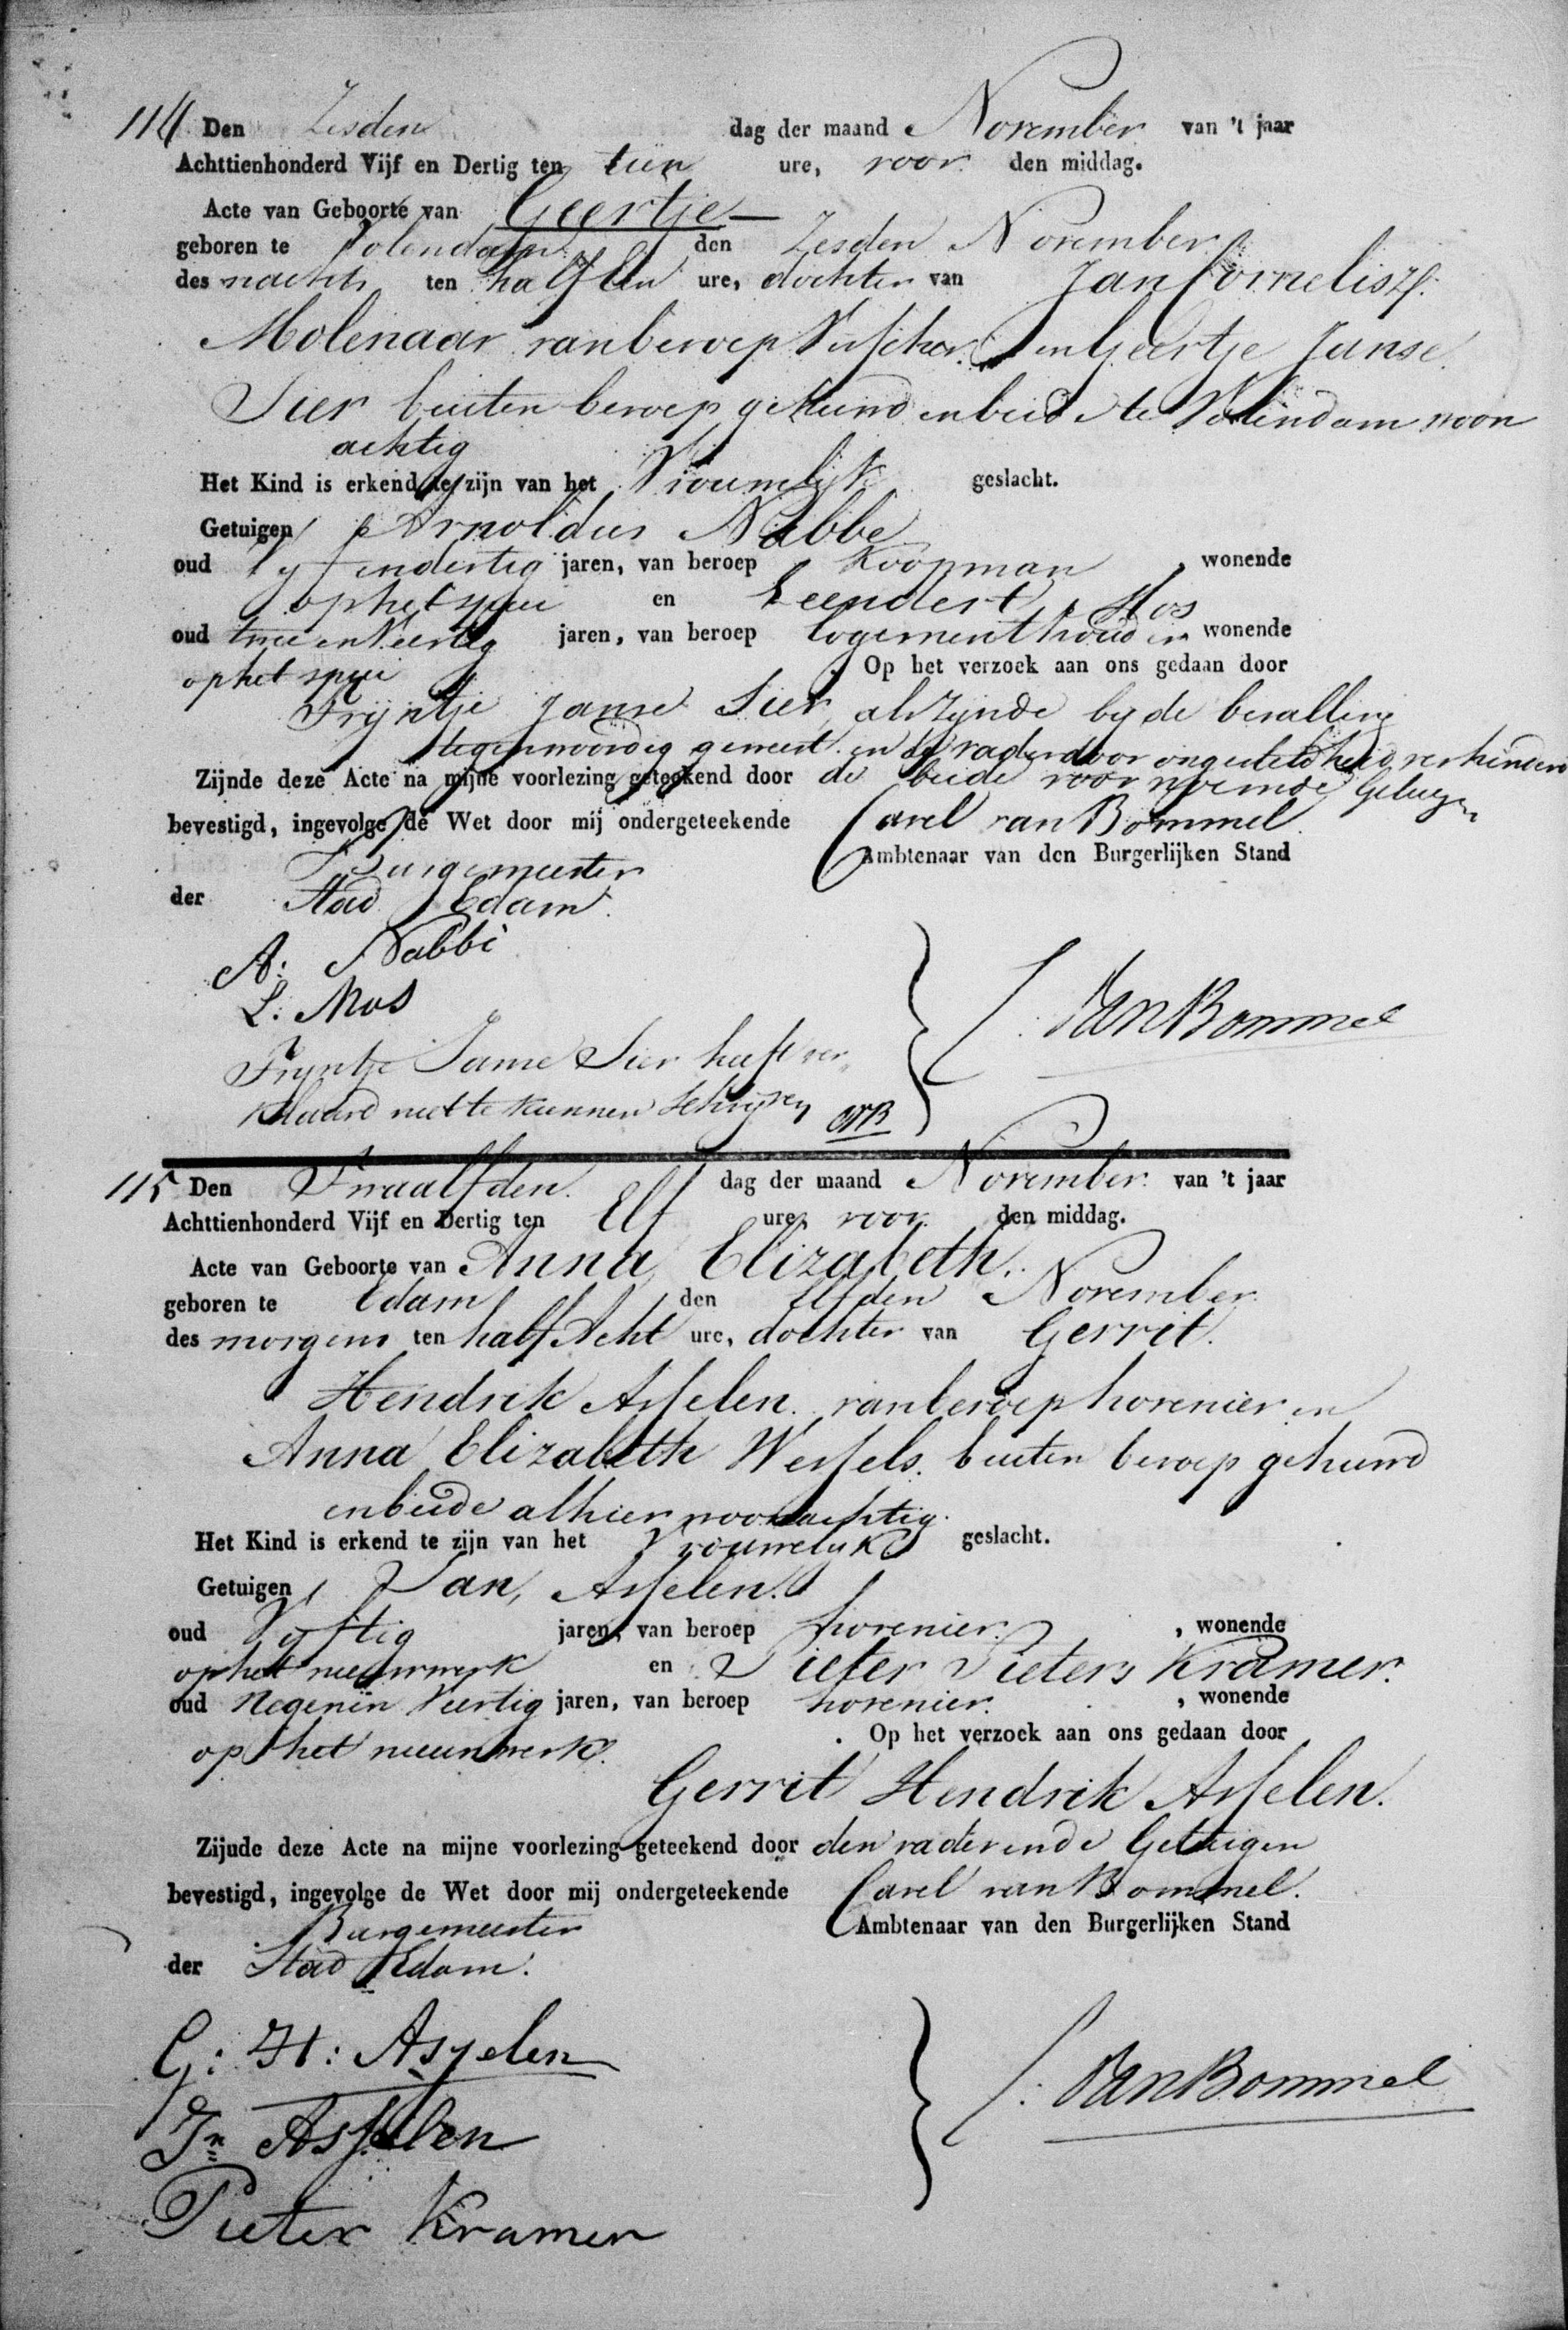 114 Den Zesden dag der maand November van 't jaar
Achttienhonderd Vijf en Dertig ten tien ure, voor den middag.
Acte van Geboorte van Geertje
geboren te Volendam den Zesden November
des nachts ten half Een ure, dochter van Jan Cornelisz.
Molenaar van beroep Visscher en Geertje Janse
Sier buiten beroep gehuwd en beide te Volendam woon
achtig
Het Kind is erkend te zijn van het Vrouwelijk geslacht.
Getuigen Arnoldus Nabbe
oud Vyf en dertig jaren, van beroep Koopman, wonende
op het spui en Leendert Mos
oud twee en Veertig jaren, van beroep logementhouder wonende
op het spui. Op het verzoek aan ons gedaan door
Trijntje Janse Sier, als zynde by de bevalling
tegenwoordig geweest en de vader door ongesteldheid verhinderd
Zijnde deze Acte na mijne voorlezing geteekend door de beide voornoemde Getuigen
bevestigd, ingevolge de Wet door mij ondergeteekende Carel van Bommel
Burgemeester Ambtenaar van den Burgerlijken Stand
der Stad Edam.
A: Nabbe
L: Mos
C. Van Bommel
Tryntje Janse Sier heeft ver-
klaard niet te kunnen schryven CVB
115 Den Twaalfden dag der maand November van 't jaar
Achttienhonderd Vijf en Dertig ten Elf ure, voor den middag.
Acte van Geboorte van Anna Elizabeth.
geboren te Edam den Elfden November
des morgens ten half Acht ure, dochter van Gerrit
Hendrik Asselen van beroep hovenier en
Anna Elizabeth Wessels buiten beroep gehuwd
en beide alhier woonachtig.
Het Kind is erkend te zijn van het Vrouwelyk geslacht.
Getuigen Jan Asselen
oud Vyftig jaren, van beroep hovenier, wonende
op het nieuwwerk en Pieter Pieters Kramer.
oud Negen en Veertig jaren, van beroep hovenier, wonende
op het nieuwwerk. Op het verzoek aan ons gedaan door
Gerrit Hendrik Asselen.
Zijude deze Acte na mijne voorlezing geteekend door den vader en de Getuigen
bevestigd, ingevolge de Wet door mij ondergeteekende Carel van Bommel.
Burgemeester Ambtenaar van den Burgerlijken Stand
der Stad Edam.
G: H: Asselen
Jn Asselen
C. Van Bommel
Pieter Kramer